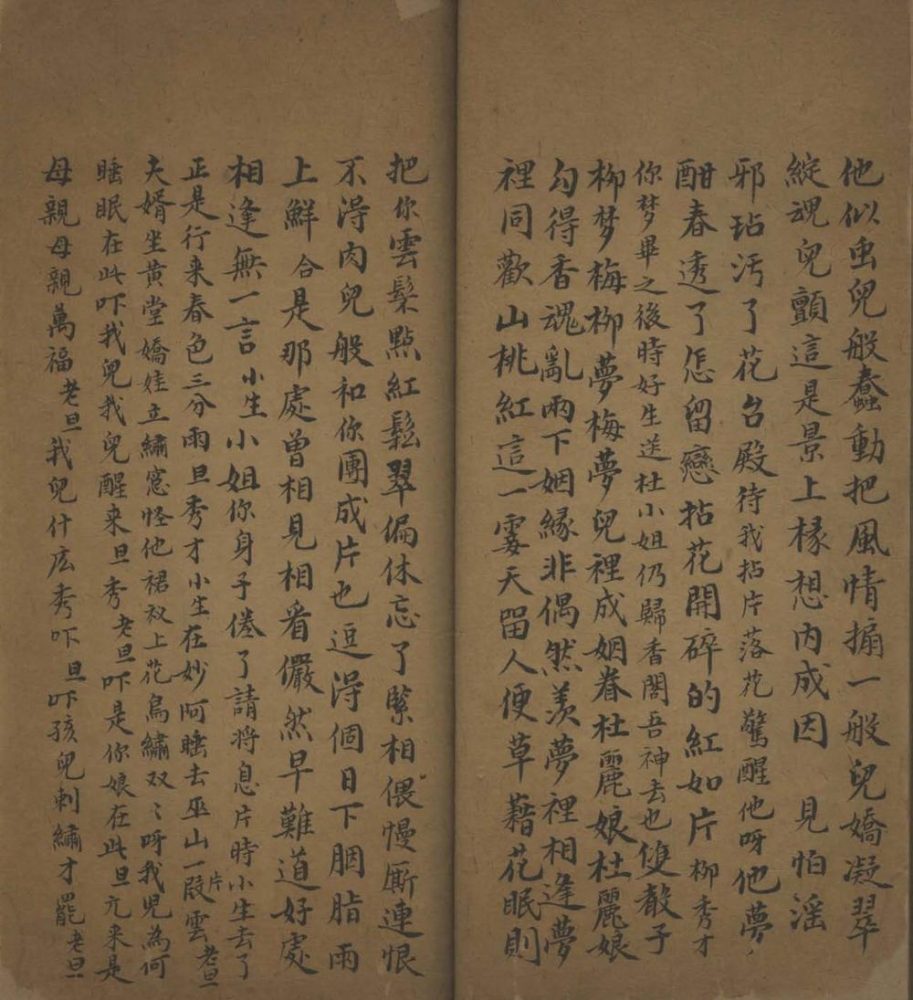 他似虫兒般蠢動把風情搧一般兒嬌凝翠
綻魂兒顫這是景上椽想内成因　見怕淫
邪玷汚了花台殿待我拈片落花驚醒他呀他夢
酣春透了怎留戀拈花開碎的紅如片柳秀才
你梦畢之後時好生送杜小姐仍歸香閣吾神去也雙毃子
柳梦梅柳夢梅夢兒裡成姻眷杜麗娘杜麗娘
勾得香魂亂兩下姻緣非偶然羡夢裡相逢夢
裡同歡山桃紅這一霎天留人便草藉花眠則
把你雲髻點紅鬆翠偏休忘了緊相偎慢厮連恨
不淂肉兒般和你團成片也逗淂個日下胭脂雨
上鮮合是那處曾相見相看儼然早難道好處
相逢無一言小生小姐你身子倦了請將息片時小生去了
正是行来春色三分雨旦秀才小生在妙阿睡去巫山一片段雲老旦
夫婿坐黄堂嬌娃立繡窓怪他裙衩上花鳥繡双〻呀我兒為何
睡眠在此吓我兒我兒醒来旦秀老旦吓是你娘在此旦亢来是
母親母親萬福老旦我兒什庅秀吓旦吓孩兒刺繡才罷老旦